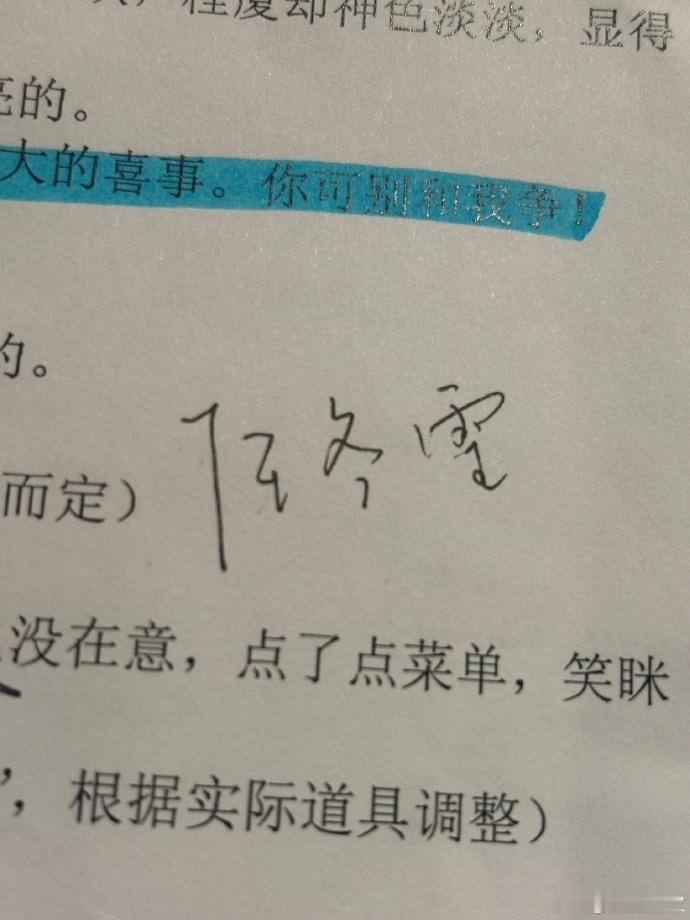 程度却神色淡淡，显得
亮的。
大的喜事。你可别和我争！
的。
而定）
陈冬雪
没在意，点了点菜单，笑眯
”，根据实际道具调整）